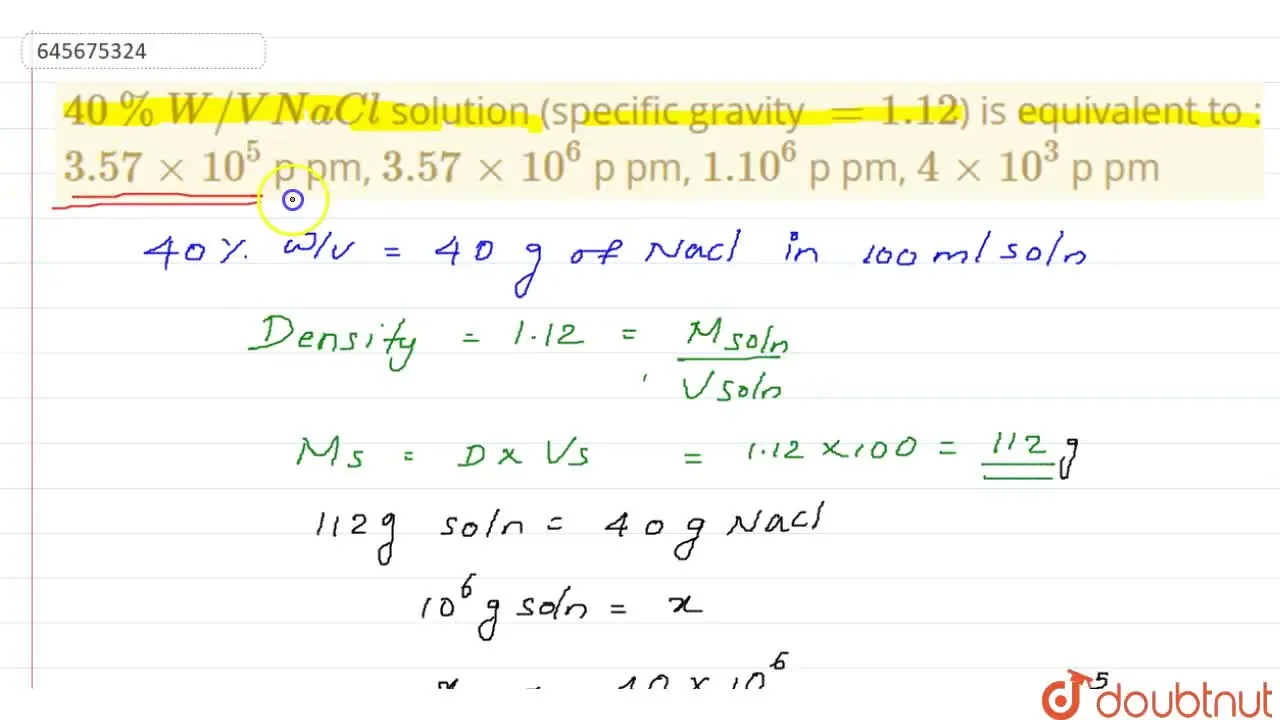 645675324
40 % W/V NaCl solution (specific gravity = 1.12) is equivalent to :
3.57 × 10⁵ p pm, 3.57 × 10⁶ p pm, 1.10⁶ p pm, 4 × 10³ p pm
40 %. W/V = 40 g of NaCl in 100 ml soln
Density = 1.12 = M soln / V soln
Ms = D x Vs = 1.12 x 100 = 112 g
112 g soln = 40 g NaCl
10⁶ g soln = x
x = 40 x 10⁶
5
doubtnut